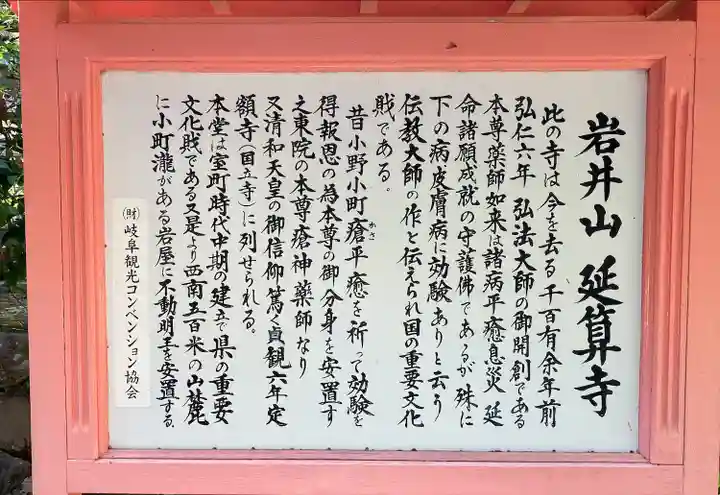 岩井山 延算寺
此の寺は今を去る千百有余年前
弘仁六年 弘法大師の御開創である
本尊薬師如来は諸病平癒息災 延
命諸願成就の守護佛であるが 殊に
下の病皮膚病に効験ありと云う
伝教大師の作と伝えられ国の重要文化
財である。
昔小野小町瘡平癒を祈って効験を
かさ
得報恩の為本尊の御分身を安置す
之東院の本尊瘡神薬師なり
又清和天皇の御信仰篤く貞観六年定
額寺(国立寺)に列せられる。
本堂は室町時代中期の建立で県の重要
文化財である又是より西南五百米の山麓
に小町瀧がある岩屋に不動明王を安置する
(財)岐阜観光コンベンション協会